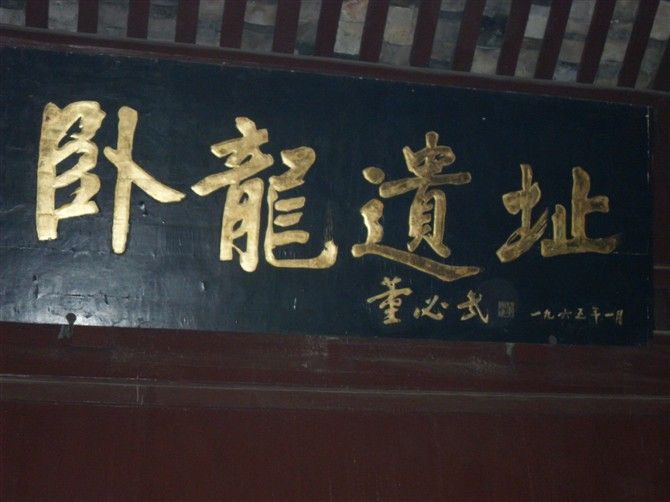 卧龍遺址
董必武 一九六五年一月